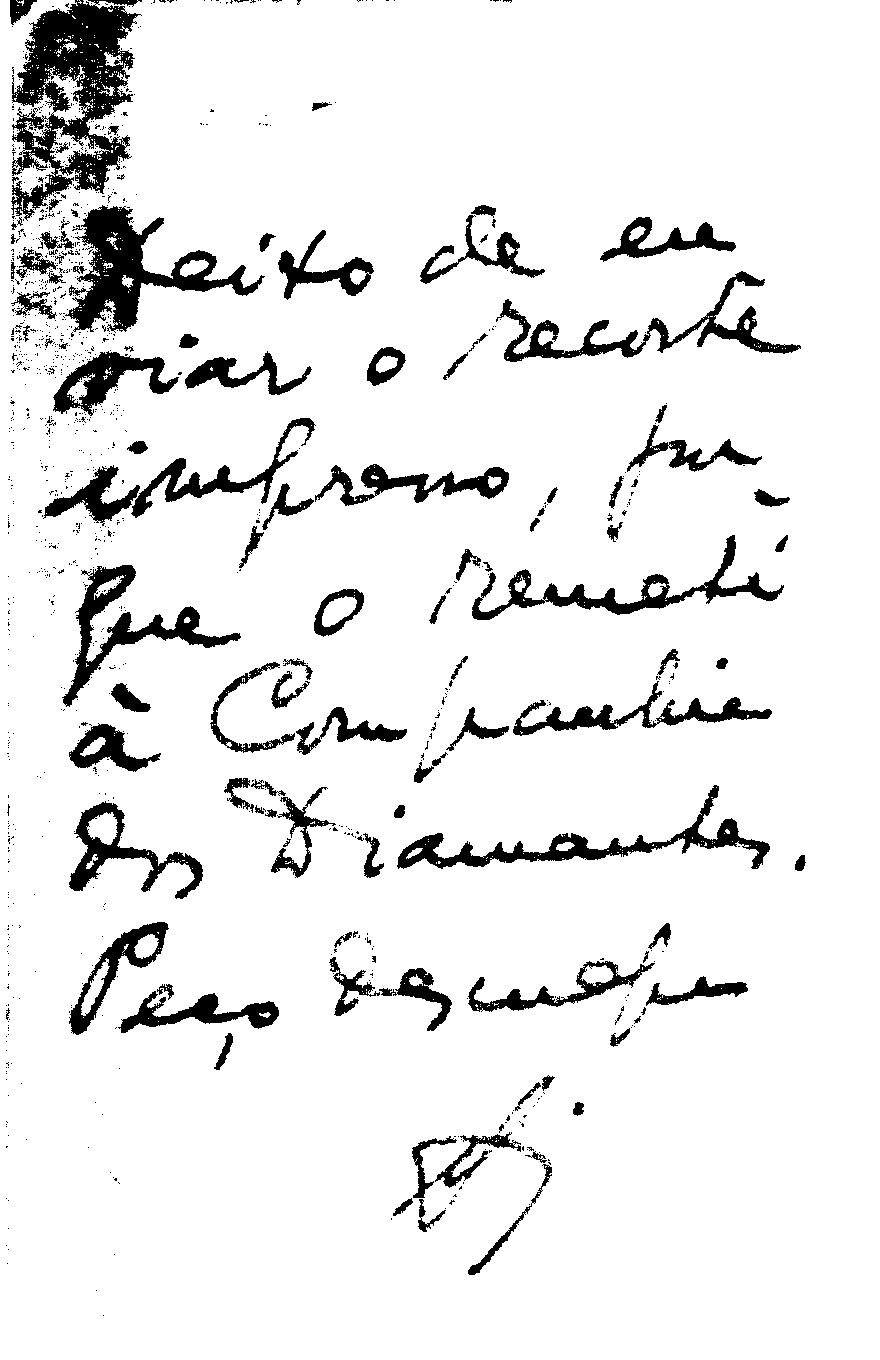 Deixo de en
viar o recorte
impresso, por
que o remeti
à Companhia
dos Diamantes.
Peço desculpa